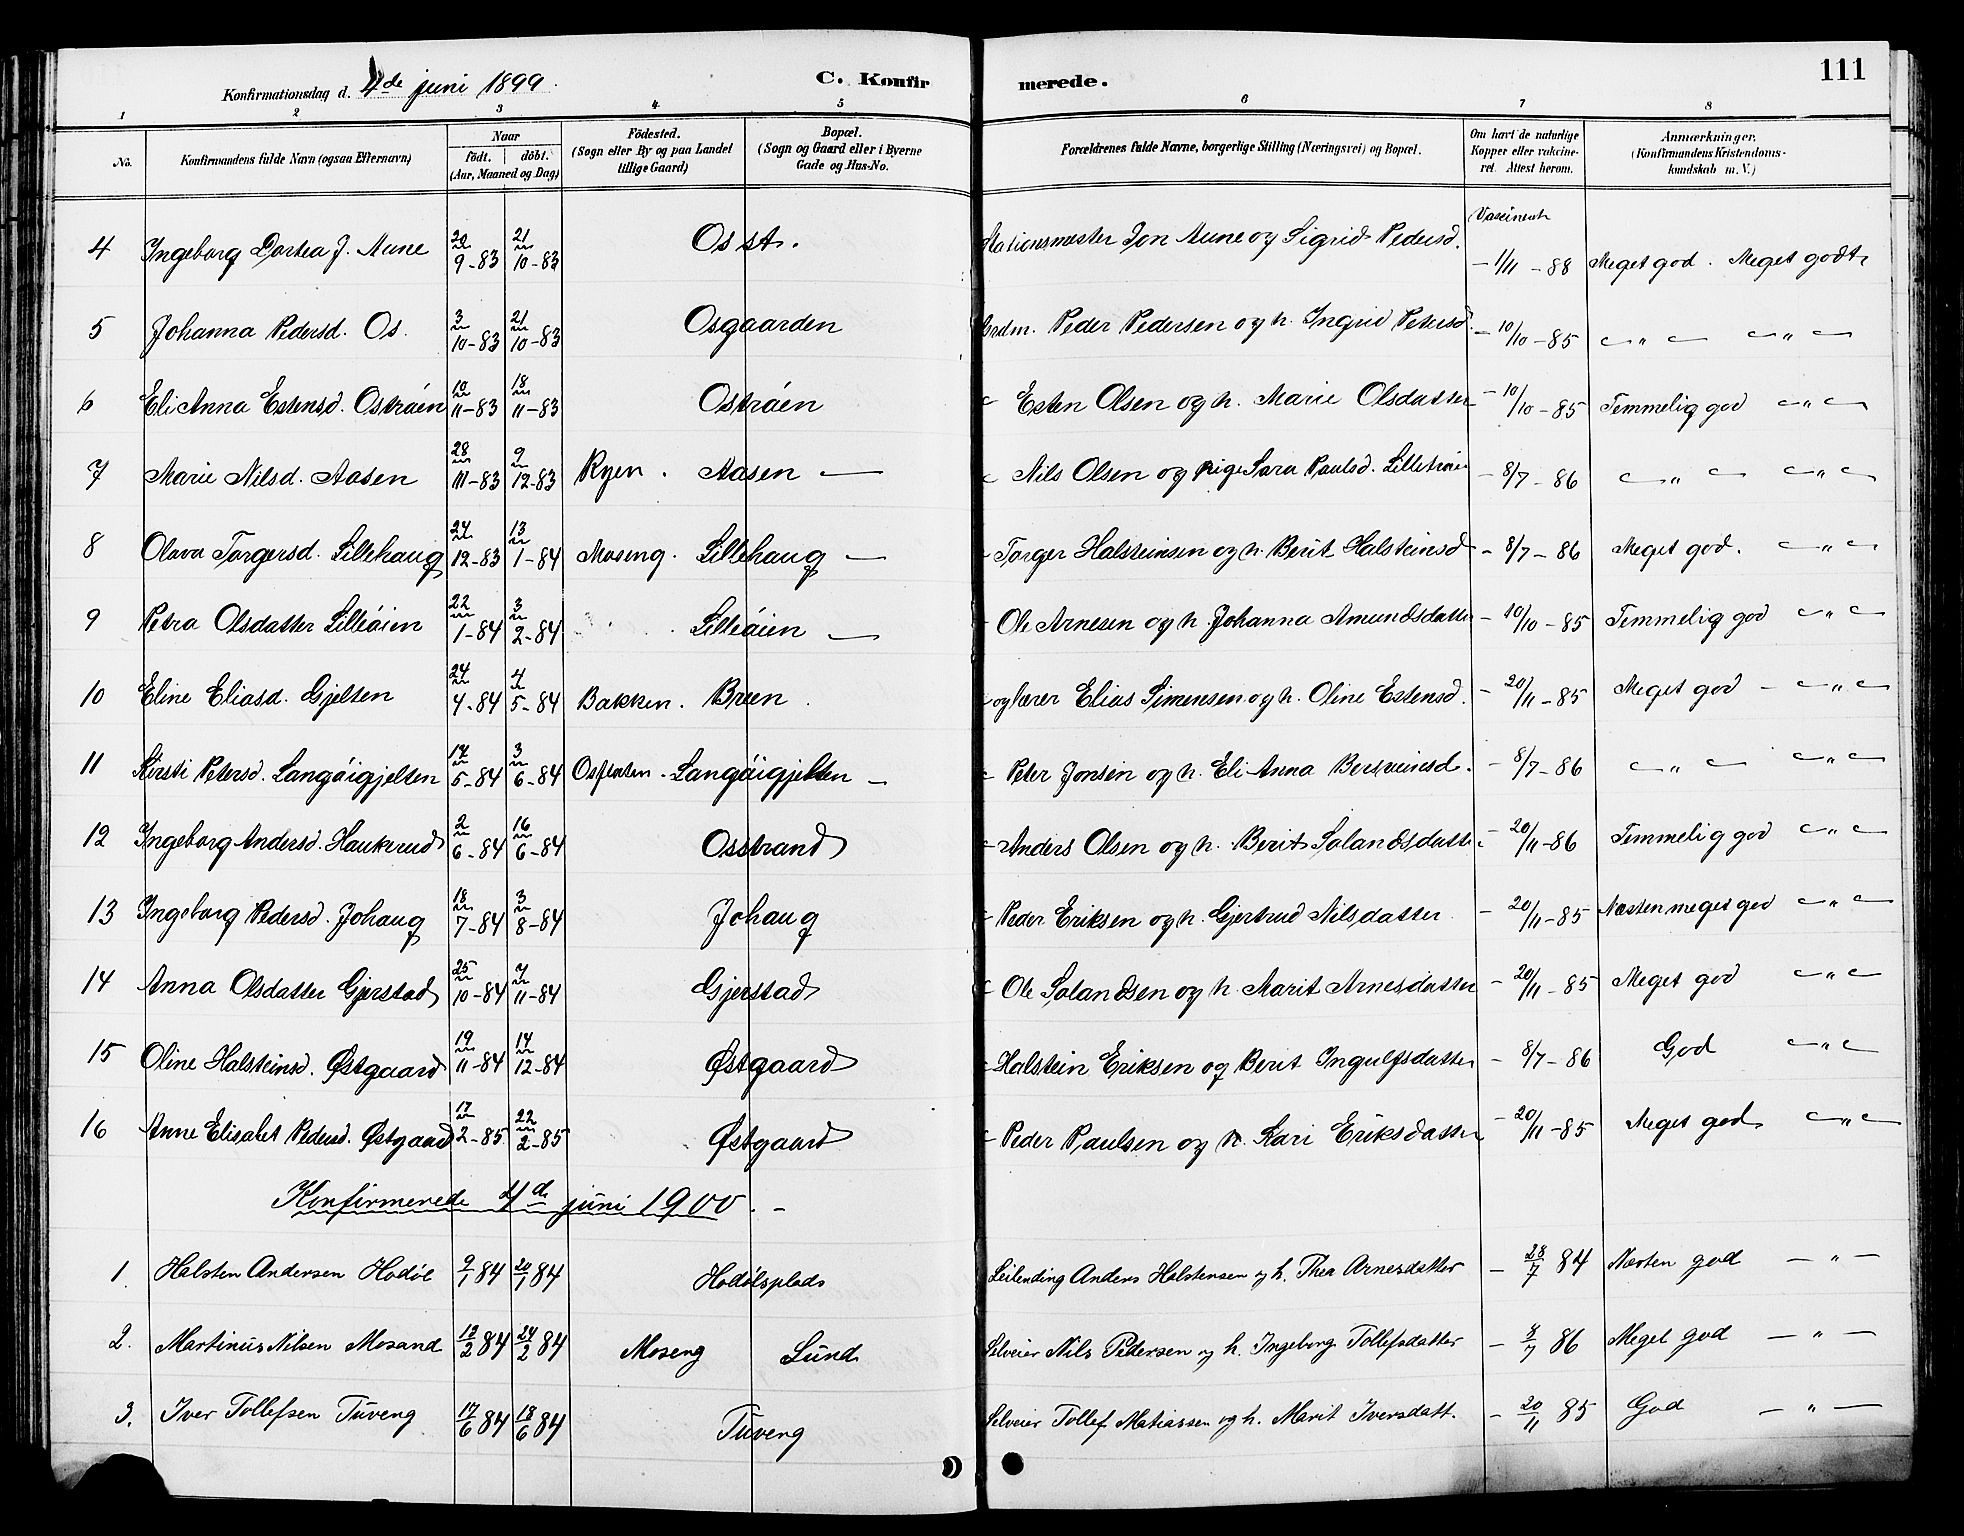 Konfirmationsdag d. 4de juni 1899. C. Konfirmerede. 111
1 2 3 4 5 6 7 8
No. Konfirmandens fulde Navn (ogsaa Efternavn) Naar födt. döbt. (Aar, Maaned og Dag) Födested. (Sogn eller By og paa Landet tillige Gaard) Bopæl. (Sogn og Gaard eller i Byerne Gade og Hus-No. Forældrenes fulde Navne, borgerlige Stilling (Næringsvei) og Bopæl. Om havt de naturlige Kopper eller vakcineret. Attest herom. Anmærkninger. (Konfirmandens Kristendomskundskab m. V.)
Vaccineret
4 Ingeborg Dortea J. Aune 20/9-83 21/10-83 Os st. Stationsmester Jon Aune og Sigrid Pedersd. - 1/11-88 Meget god. Meget godt
5 Johanna Pedersd. Os. 3/10-83 21/10-83 Osgaarden Grdm. Peder Pedersen og h. Ingrid Petersd. - 10/10-85 - " - - " -
6 Eli Anna Estensd. Ostrøen 10/11-83 18/11-83 Ostrøen - Esten Olsen og h. Marie Olsdatter - 10/10-85 Temmelig god - " -
7 Marie Nilsd. Aasen 28/11-83 9/12-83 Ryen. Aasen — - Nils Olsen og pige Sara Paulsd. - 8/7-86 - " - - " -
8 Olava Torgersd. Lillehaug 24/12-83 13/1-84 Moseng. Lillehaug — - Torger Halsteinsen og h. Berit Halsteinsd - 8/7-86 Meget god. - " -
9 Petra Olsdatter Lilleøien 22/1-84 3/2-84 Lilleøien — - Ole Arnesen og h. Johanna Amundsdatter - 10/10-85 Temmelig god - " -
10 Eline Eliasd. Gjelten 24/4-84 4/5-84 Bakken. Breen. Elias Simensen og h. Oline Estensd. - 20/11-85 Meget god - - " -
11 Kirsti Petersd. Langøigjelten 14/5-84 3/6-84 Langøigjelten — - Peter Jonsen og h. Eli Anna Bersveinsd. - 8/7-86 - " - - " -
12 Ingeborg Andersd. Haukrud 2/6-84 16/6-84 Osstrand - Anders Olsen og h. Berit Salandsdatter - 20/11-86 Temmelig god - " -
13 Ingeborg Pedersd. Johaug 18/7-84 3/8-84 Johaug - Peder Eriksen og h. Gjertrud Nilsdatter - 20/11-85 Næsten meget god - " -
14 Anna Olsdatter Gjerstad 25/10-84 7/11-84 Gjerstad - Ole Salandsen og h. Marit Arnesdatter - 20/11-85 Meget god - " -
15 Oline Halsteinsd. Østgaard 19/11-84 14/12-84 Østgaard - Halstein Eriksen og Berit Ingulfsdatter - 8/7-86 God - " -
16 Anne Elisabet Pedersd. Østgaard 17/2-85 22/2-85 Østgaard - Peder Paulsen og h. Kari Eriksdatter - 20/11-85 Meget god - " -
Konfirmerede 4de juni 1900. -
1. Halsten Andersen Hodøl 9/1 84 20/1 84 Hodølsplads Leilending Anders Halstensen og h. Thea Arnesdatter - 28/7 84 Næsten god - " -
2. Martinus Nilsen Mosand 12/2 84 24/2 84 Moseng Lund Selveier Nils Pedersen og h. Ingeborg Tollefsdatter - 8/7 86 Meget god - " -
3. Iver Tollefsen Tuveng 17/6 84 18/6 84 Tuveng Selveier Tollef Matiassen og h. Marit Iversdatt. - 20/11 85 God - " -